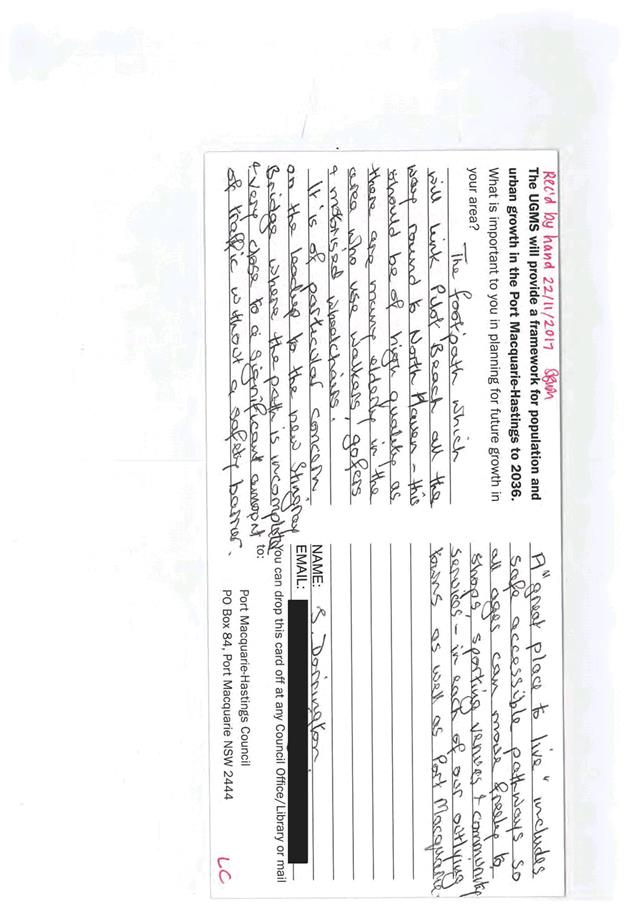 Rec'd by hand 22/11/2017
The UGMS will provide a framework for population and
urban growth in the Port Macquarie-Hastings to 2036.
What is important to you in planning for future growth in
your area?
The footpath which
will link Pilot Beach all the
way round to North Haven - this
should be of high quality as
there are many elderly in the
area who use walkers, gofers
& motorised wheelchairs.
It is of particular concern
on the leadup to the new Stingray
Bridge where the path is incomplete
& very close to a significant amount
of traffic without a safety barrier.
A "great place to live" includes
safe accessible pathways so
all ages can move freely to
shops, sporting venues & community
services - in each of our outlying
towns as well as Port Macquarie.
NAME: S. Dorrington.
EMAIL:
You can drop this card off at any Council Office/Library or mail
to:
Port Macquarie-Hastings Council
PO Box 84, Port Macquarie NSW 2444
LC